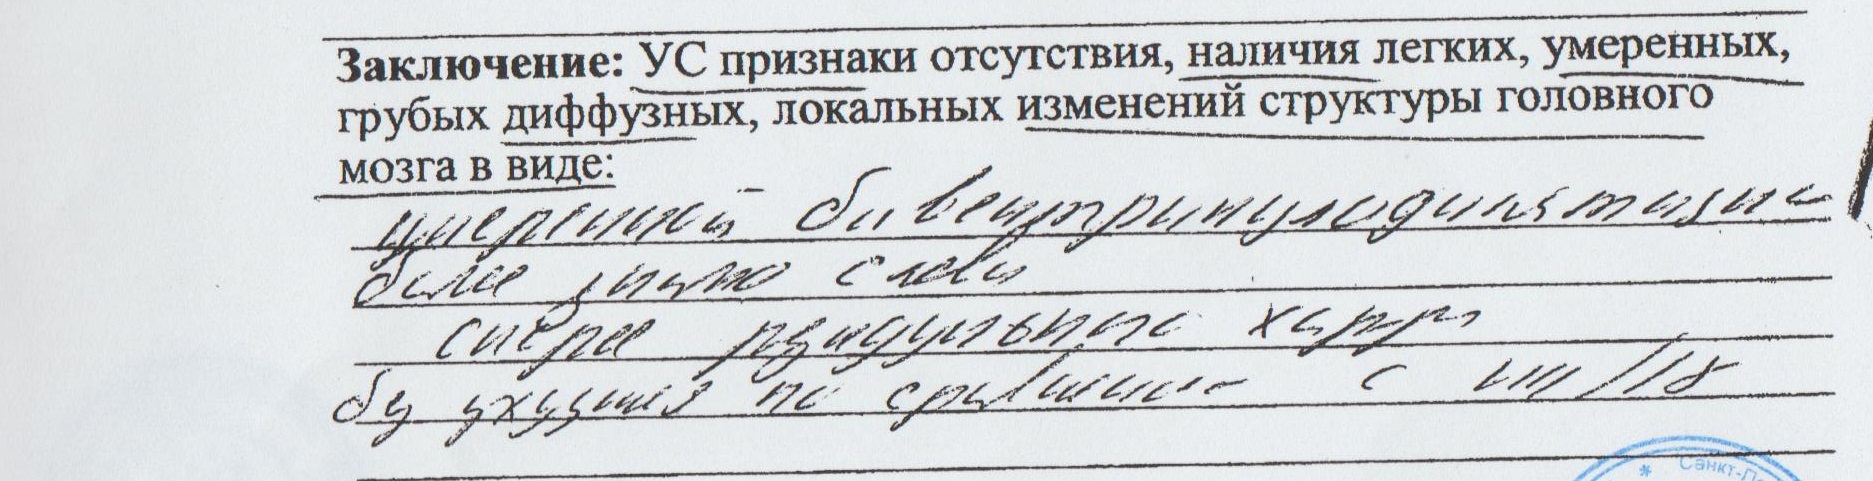 Заключение: УС признаки отсутствия, наличия легких, умеренных,
грубых диффузных, локальных изменений структуры головного
мозга в виде:
умеренной бивентрикулодилятации
более слева
скорее резидуального
без ухудшения по сравнению с /18
Санкт-П